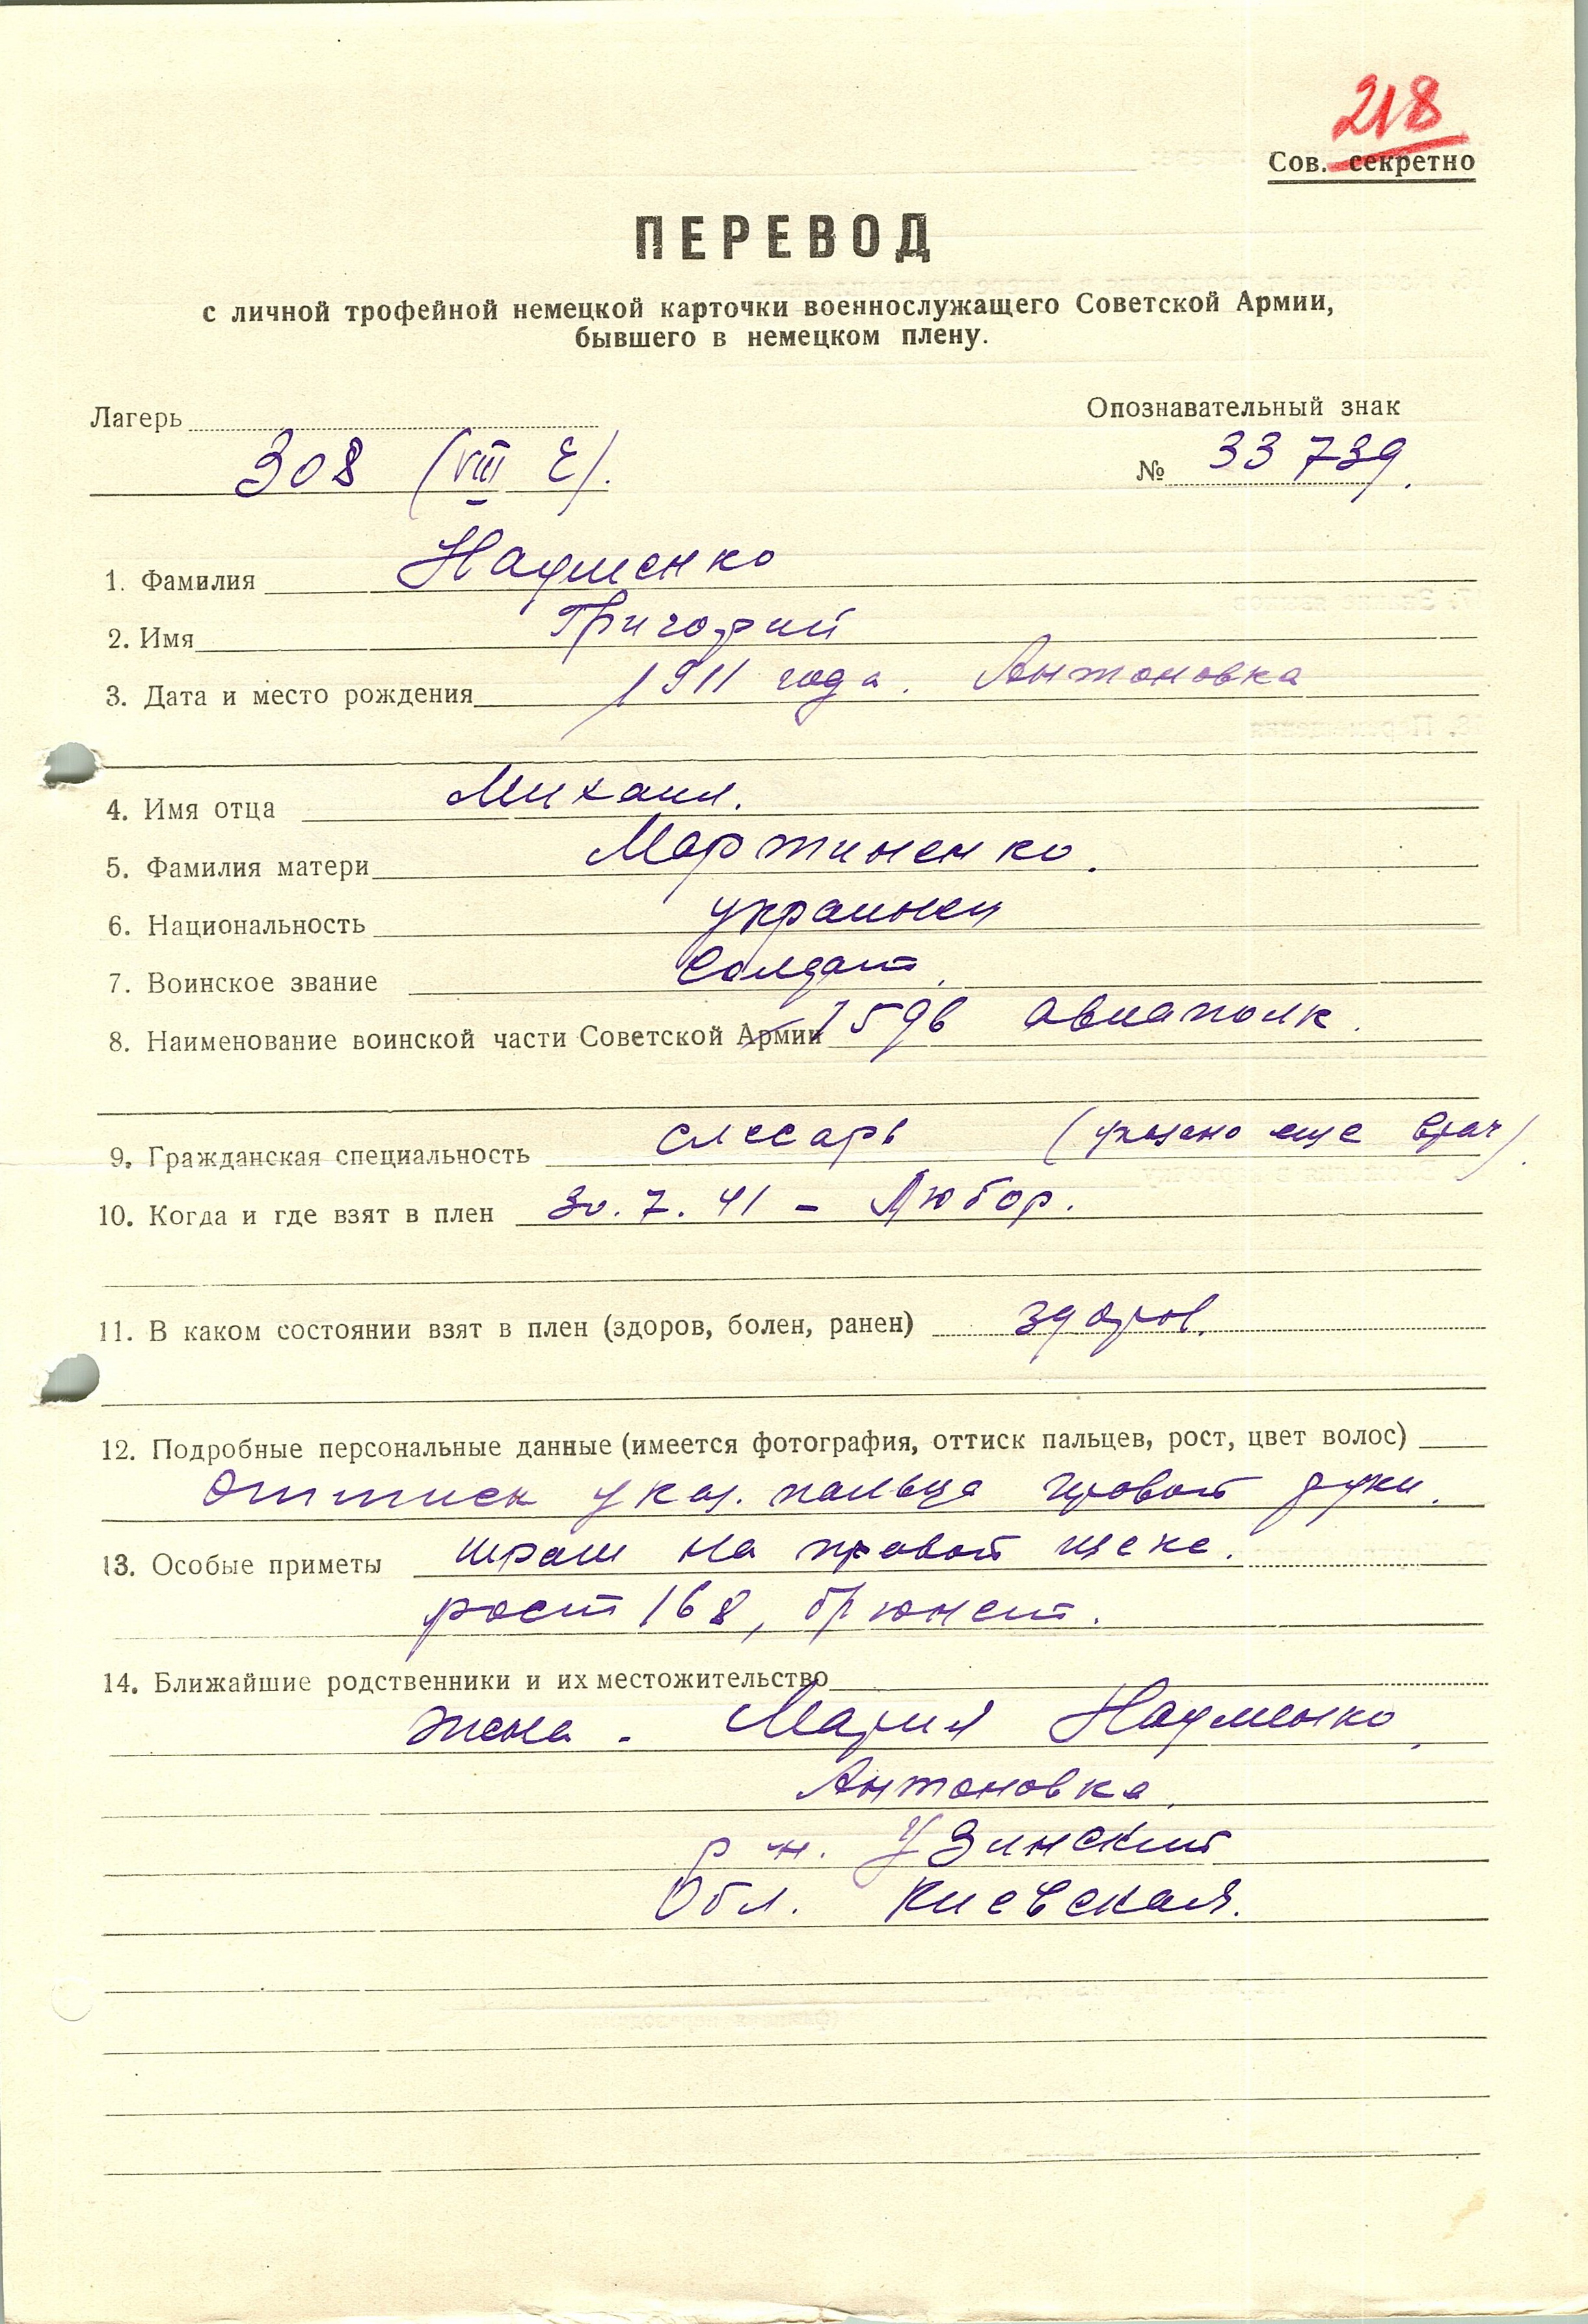 218
Сов. секретно
ПЕРЕВОД
с личной трофейной немецкой карточки военнослужащего Советской Армии,
бывшего в немецком плену.
Лагерь
Опознавательный знак
308 (VIII E).
№ 33 739.
1. Фамилия Науменко
2. Имя Григорий
3. Дата и место рождения 1911 года. Антоновка
4. Имя отца Михаил.
5. Фамилия матери Мартиненко.
6. Национальность украинец
7. Воинское звание Солдат.
8. Наименование воинской части Советской Армии авиаполк.
9. Гражданская специальность слесарь (указано еще врач).
10. Когда и где взят в плен 30. 7. 41 – Любор.
11. В каком состоянии взят в плен (здоров, болен, ранен) здоров.
12. Подробные персональные данные (имеется фотография, оттиск пальцев, рост, цвет волос)
Оттиск указ. пальца правой руки.
13. Особые приметы шрам на правой щеке.
рост 168, брюнет.
14. Ближайшие родственники и их местожительство
жена - Мария Науменко,
Антоновка,
р-н. Узинский
Обл. Киевская.